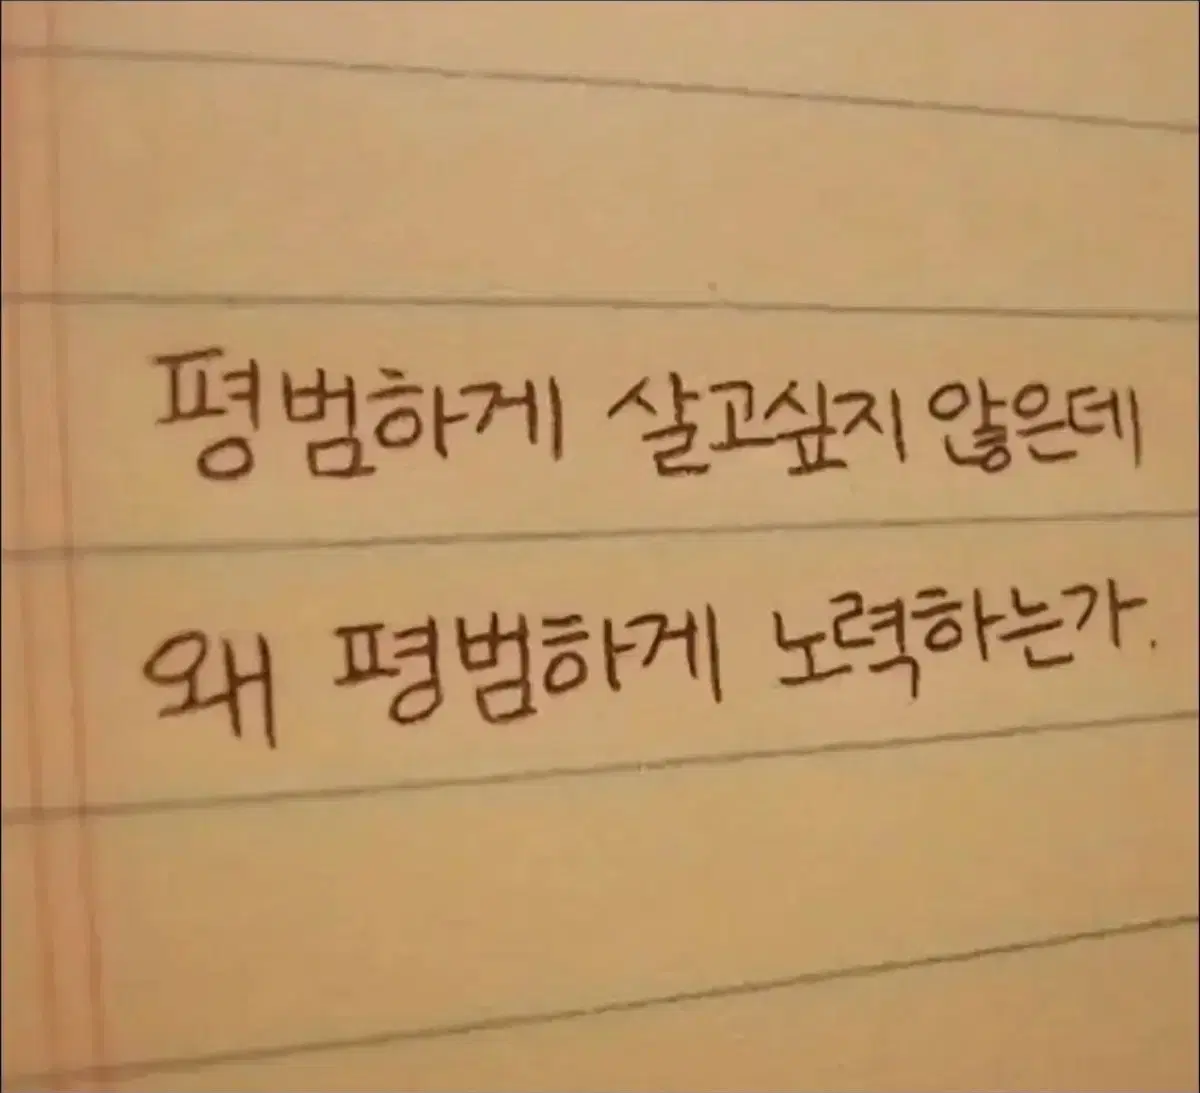 평범하게 살고싶지 않은데
왜 평범하게 노력하는가.